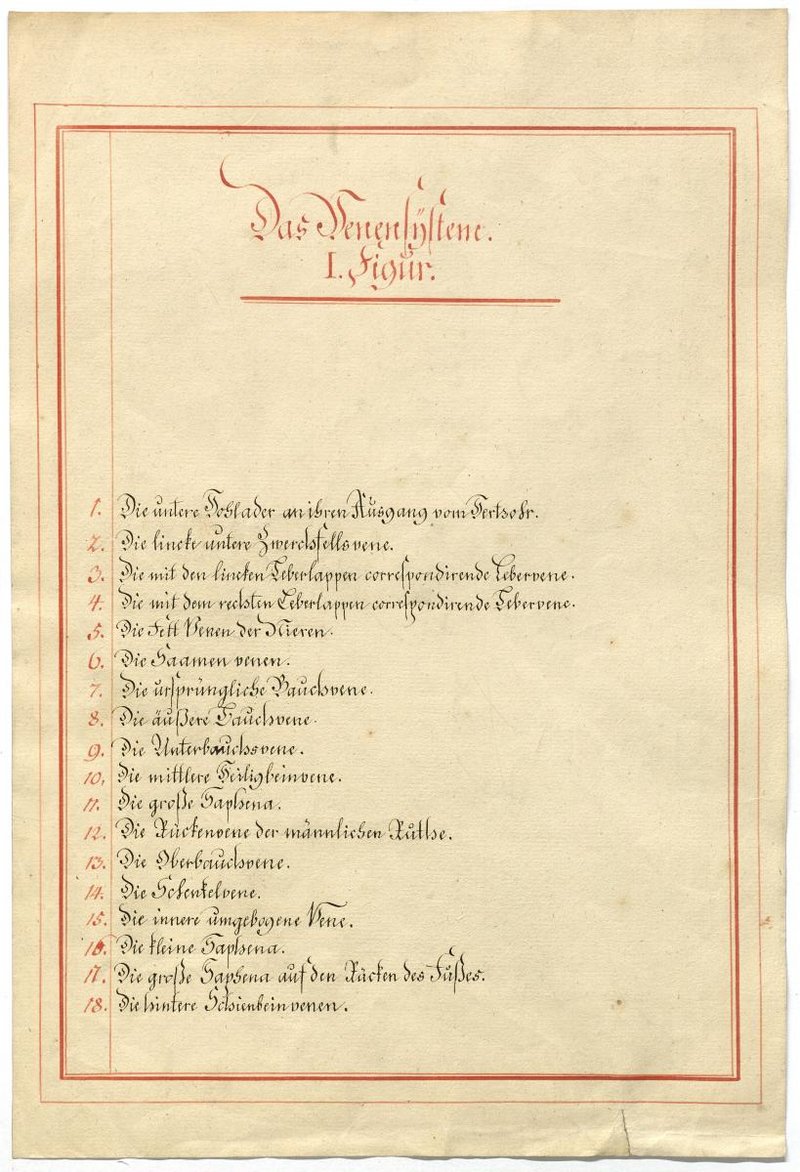 Das Venensÿstem.
I. Figur.
1. Die untere Hohlader an ihren Ausgang vom Herzohr.
2. Die lincke untere Zwerchfellsvene.
3. Die mit den lincken Leberlappen correspondirende Lebervene.
4. Die mit dem rechten Leberlappen correspondirende Lebervene.
5. Die Fett Venen der Nieren.
6. Die Saamen venen.
7. Die ursprüngliche Bauchvene.
8. Die äußere Bauchvene.
9. Die Unterbauchsvene.
10. Die mittlere Heiligbeinvene.
11. Die große Saphena.
12. Die Rückenvene der männlichen Ruthe.
13. Die Oberbauchvene.
14. Die Schenkelvene.
15. Die innere umgebogene Vene.
16. Die kleine Saphena.
17. Die große Saphena auf den Rücken des Fußes.
18. Die hintere Schienbeinvenen.